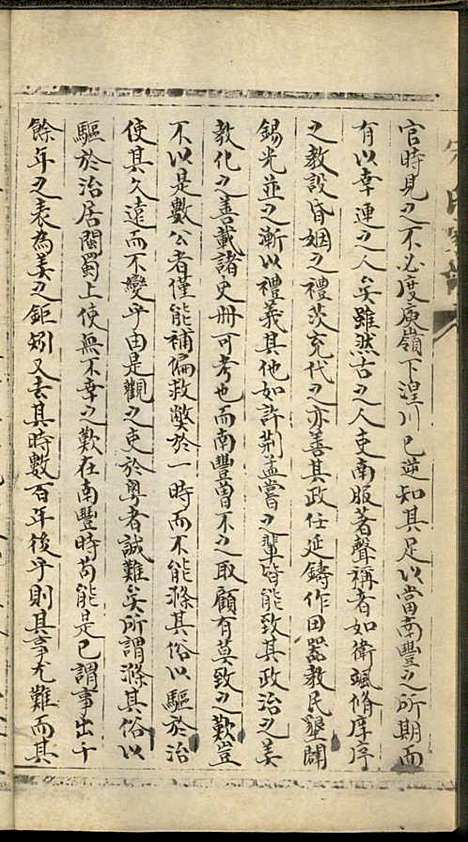 官時見之不必度庾嶺下湟川已逆知其足以當南豐之所期而
有以幸連之人矣雖然古之人吏南服著聲稱者如衛颯脩庠序
之教設昏姻之禮茨充代之亦善其政任延鑄作田器教民墾闢
錫光並之漸以禮義其他如許荊孟嘗之輩皆能致其政治之美
教化之善載諸史册可考也而南豐曾不之取顧有莫致之歎豈
不以是數公者僅能補偏救弊於一時而不能滌其俗以驅於治
使其久遠而不變乎由是觀之吏於粵者誠難矣所謂滌其俗以
驅於治居閩蜀上使無不幸之歎在南豐時苟能是已謂事出千
餘年之表為美之鉅矧又去其時數百年後乎則其事尤難而其